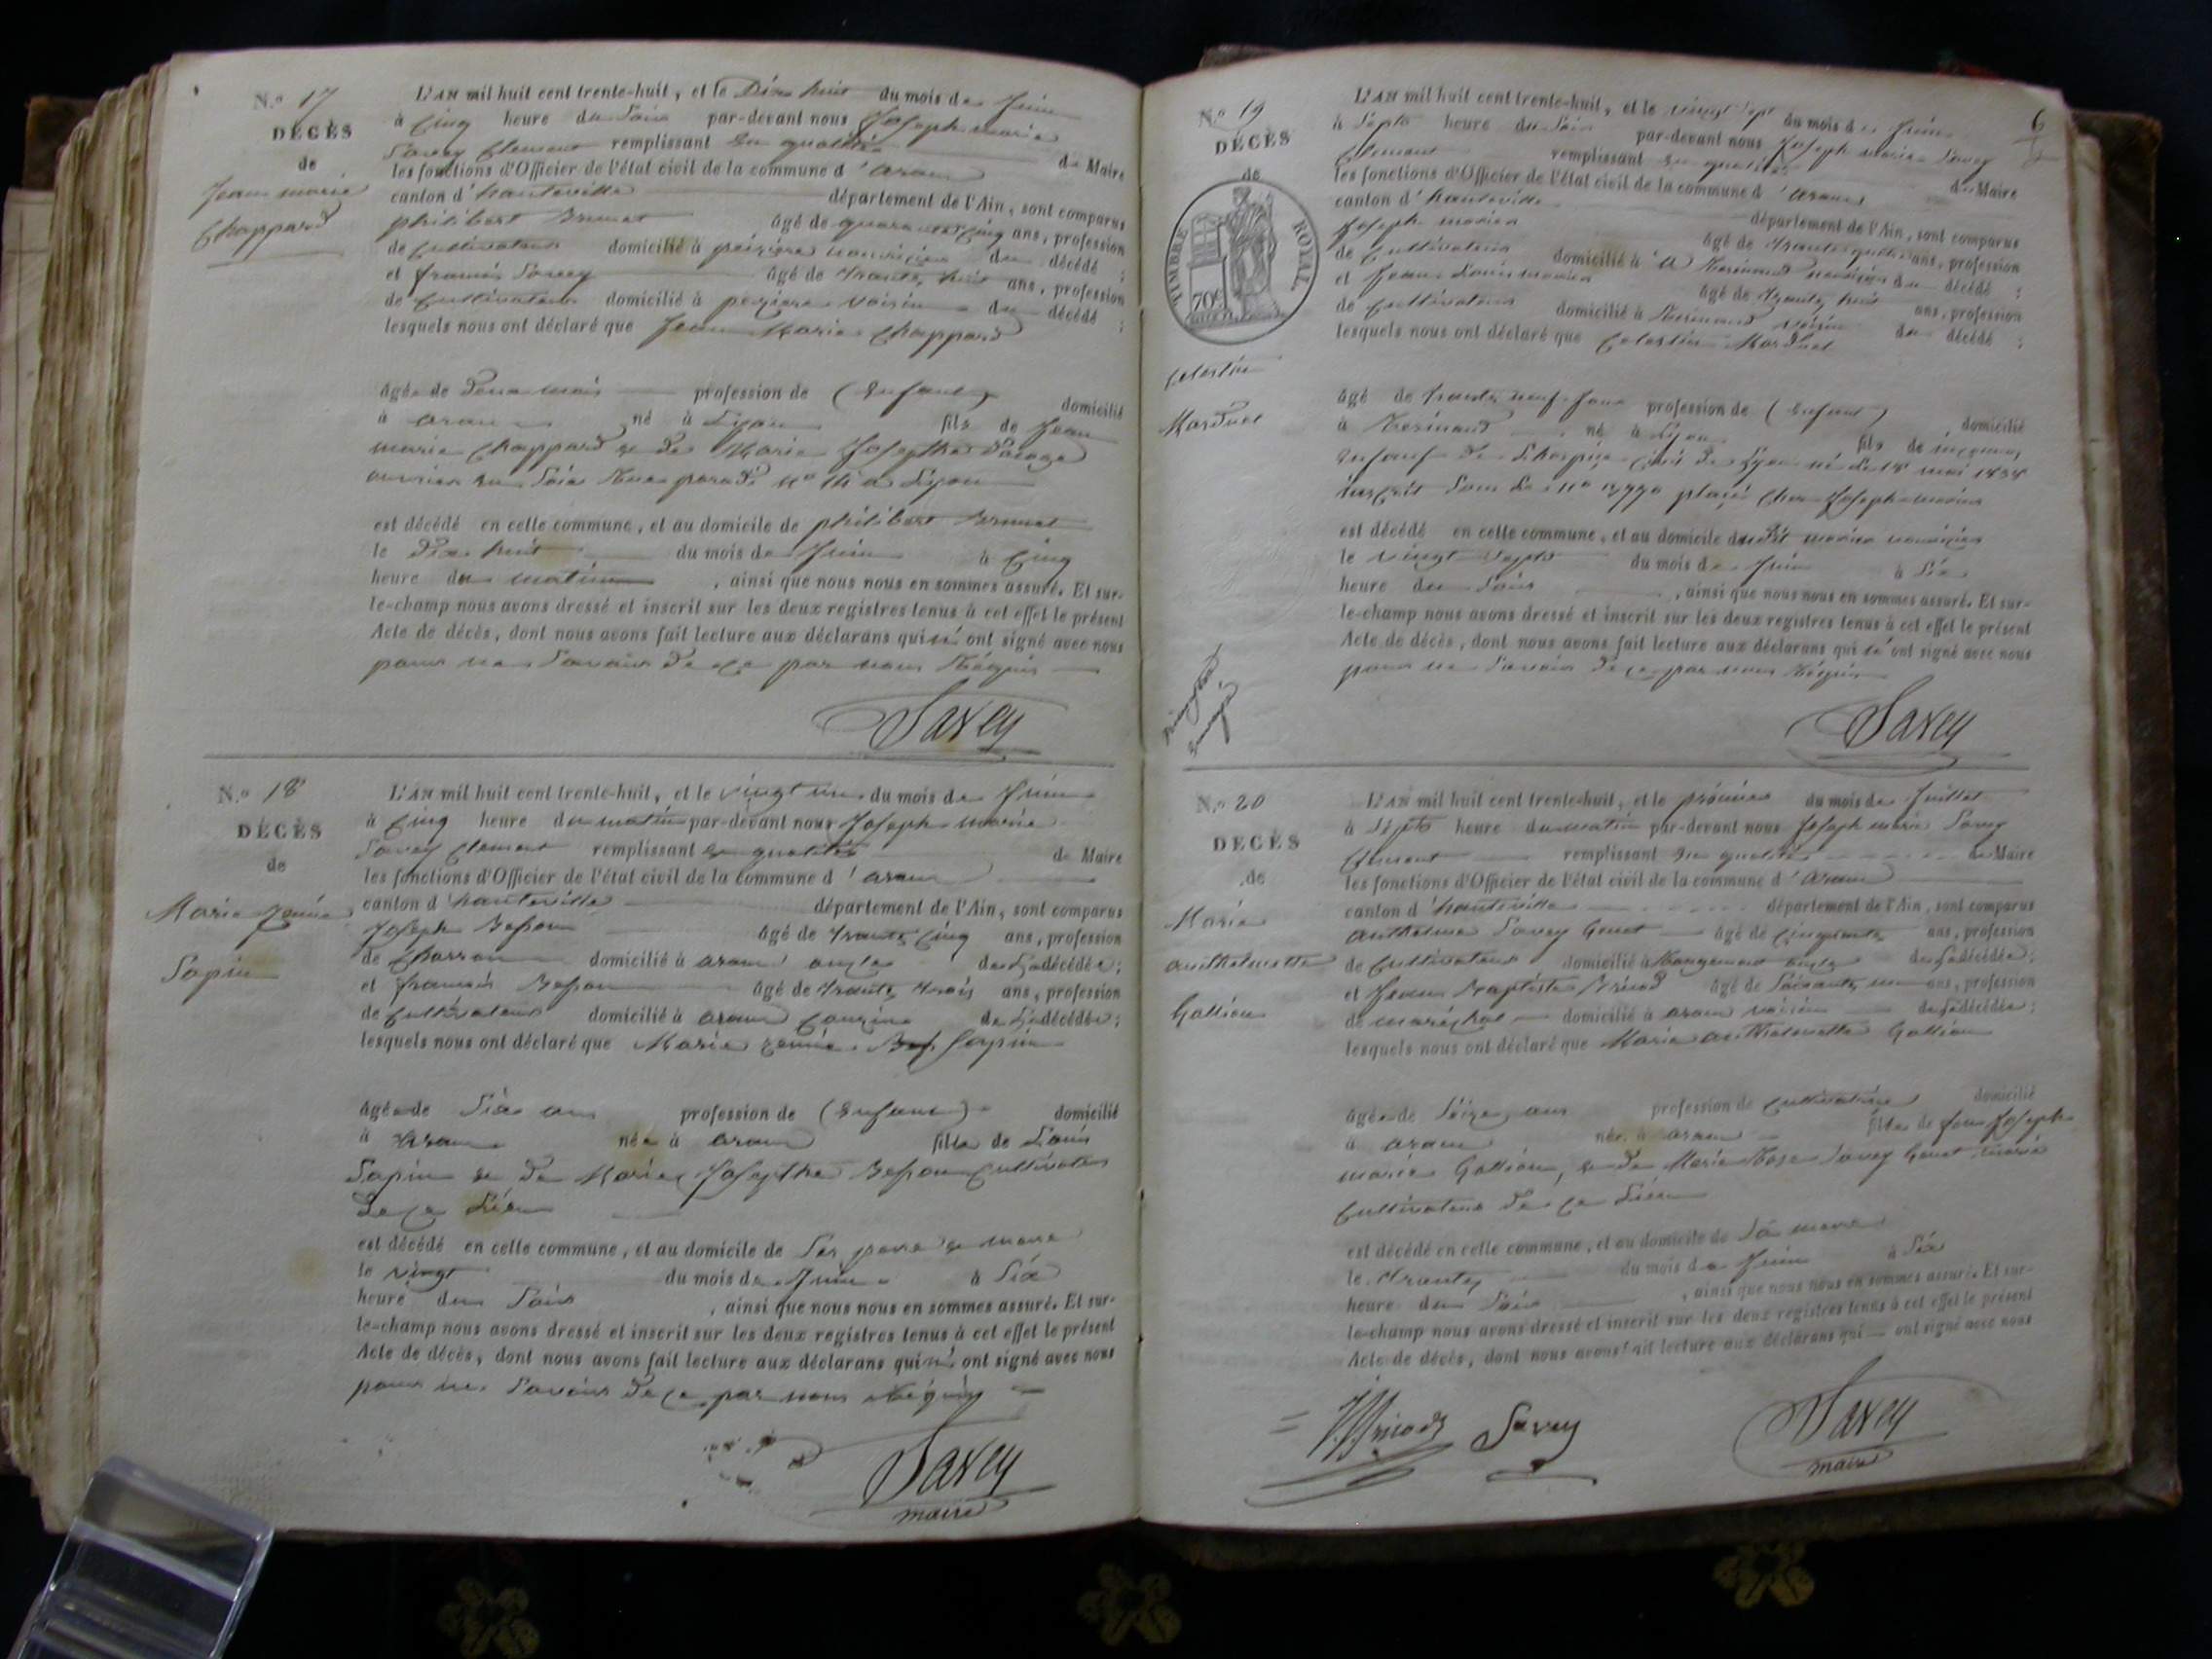 N.º 17
DÉCÈS
de
Jean marie
Chappard
L'AN mil huit cent trente-huit, et le Dix huit du mois de Juin
à Cinq heure du Soir par-devant nous Joseph marie
Savey Clement remplissant en qualité de Maire
les fonctions d'Officier de l'état civil de la commune d'aran
canton d'hauteville département de l'Ain, sont comparus
philibert Brunet âgé de quarante Cinq ans, profession
de Cultivateur domicilié à peizière nouricier du décédé;
et francois Savey âgé de trante huit ans, profession
de Cultivateur domicilié à peiziere voisin du décédé;
lesquels nous ont déclaré que Jean Marie Chappard
âgé de Deux mois profession de (Enfant) domicilié
à aran né à Lyon fils de Jean
marie Chappard & de Marie Josephte
ouvrier en Soie Rue n° 14 a Lyon
est décédé en cette commune, et au domicile de philibert Brunet
le Dix huit du mois de Juin à Cinq
heure du matin, ainsi que nous nous en sommes assuré. Et sur-
le-champ nous avons dressé et inscrit sur les deux registres tenus à cet effet le présent
Acte de décès, dont nous avons fait lecture aux déclarans qui n'ont signé avec nous
pour ne Savoir de ce par nous Réquis
Savey
N.º 18
DÉCÈS
de
Marie
Sapin
L'AN mil huit cent trente-huit, et le vingt un du mois de Juin
à Cinq heure du matin par-devant nous Joseph marie
Savey Clement remplissant en qualité de Maire
les fonctions d'Officier de l'état civil de la commune d'aran
canton d'hauteville département de l'Ain, sont comparus
Joseph Besson âgé de trante Cinq ans, profession
de Charron domicilié à aran oncle de la décédée;
et francois Besson âgé de trante trois ans, profession
de Cultivateur domicilié à aran Couzin de la décédée;
lesquels nous ont déclaré que Marie Sapin
âgée de Six ans profession de (Enfant) domicilié
à Aran née à aran fille de Louis
Sapin & de Marie Josephte Besson Cultivateur
de ce Lieu
est décédé en cette commune, et au domicile de Ses pere & mere
le vingt du mois de Juin à Six
heure du Soir, ainsi que nous nous en sommes assuré. Et sur-
le-champ nous avons dressé et inscrit sur les deux registres tenus à cet effet le présent
Acte de décès, dont nous avons fait lecture aux déclarans qui n'ont signé avec nous
pour ne Savoir de ce par nous Réquis
Savey
maire
6
N.º 19
DÉCÈS
de
TIMBRE ROYAL
70c
Celestin
Marduel
L'AN mil huit cent trente-huit, et le vingt Sept du mois de Juin
à Septs heure du Soir par-devant nous Joseph marie Savey
Clement remplissant en qualité de Maire
les fonctions d'Officier de l'état civil de la commune d'aran
canton d'hauteville département de l'Ain, sont comparus
Joseph âgé de trante quatre ans, profession
de Cultivateur domicilié à nouricier du décédé;
et Jean Louis âgé de trante huit ans, profession
de Cultivateur domicilié à voisin du décédé;
lesquels nous ont déclaré que Celestin Marduel
âgé de trante neuf Jour profession de (Enfant), domicilié
à né à Lyon fils de inconnu,
Enfant de L'hospice de Lyon né le 18 mai 1838
inscrit Sous Le n° placé Chez Joseph
est décédé en cette commune, et au domicile dudit nouricier
le vingt Septs du mois de Juin à Six
heure du Soir, ainsi que nous nous en sommes assuré. Et sur-
le-champ nous avons dressé et inscrit sur les deux registres tenus à cet effet le présent
Acte de décès, dont nous avons fait lecture aux déclarans qui n'ont signé avec nous
pour ne Savoir de ce par nous Réquis
Savey
N.º 20
DÉCÈS
de
Marie
anthelmette
Gallion
L'AN mil huit cent trente-huit, et le prémier du mois de Juillet
à Septs heure du matin par-devant nous Joseph marie Savey
Clement remplissant en qualité de Maire
les fonctions d'Officier de l'état civil de la commune d'aran
canton d'hauteville département de l'Ain, sont comparus
anthelme Savey Genet âgé de Cinquante ans, profession
de Cultivateur domicilié à oncle de la décédée;
et Jean Baptiste Bricod âgé de Soixante un ans, profession
de maréchal domicilié à aran voisin de la décédée;
lesquels nous ont déclaré que Marie anthelmette Gallion
âgée de Seize ans profession de Cultivatrice domicilié
à aran née à aran fille de feu Joseph
marie Gallion, & de Marie Rose Savey Genet
Cultivateur de ce Lieu
est décédé en cette commune, et au domicile de Sa mere
le trante du mois de Juin à Six
heure du Soir, ainsi que nous nous en sommes assuré. Et sur-
le-champ nous avons dressé et inscrit sur les deux registres tenus à cet effet le présent
Acte de décès, dont nous avons fait lecture aux déclarans qui ont signé avec nous
Savey
Savey
maire